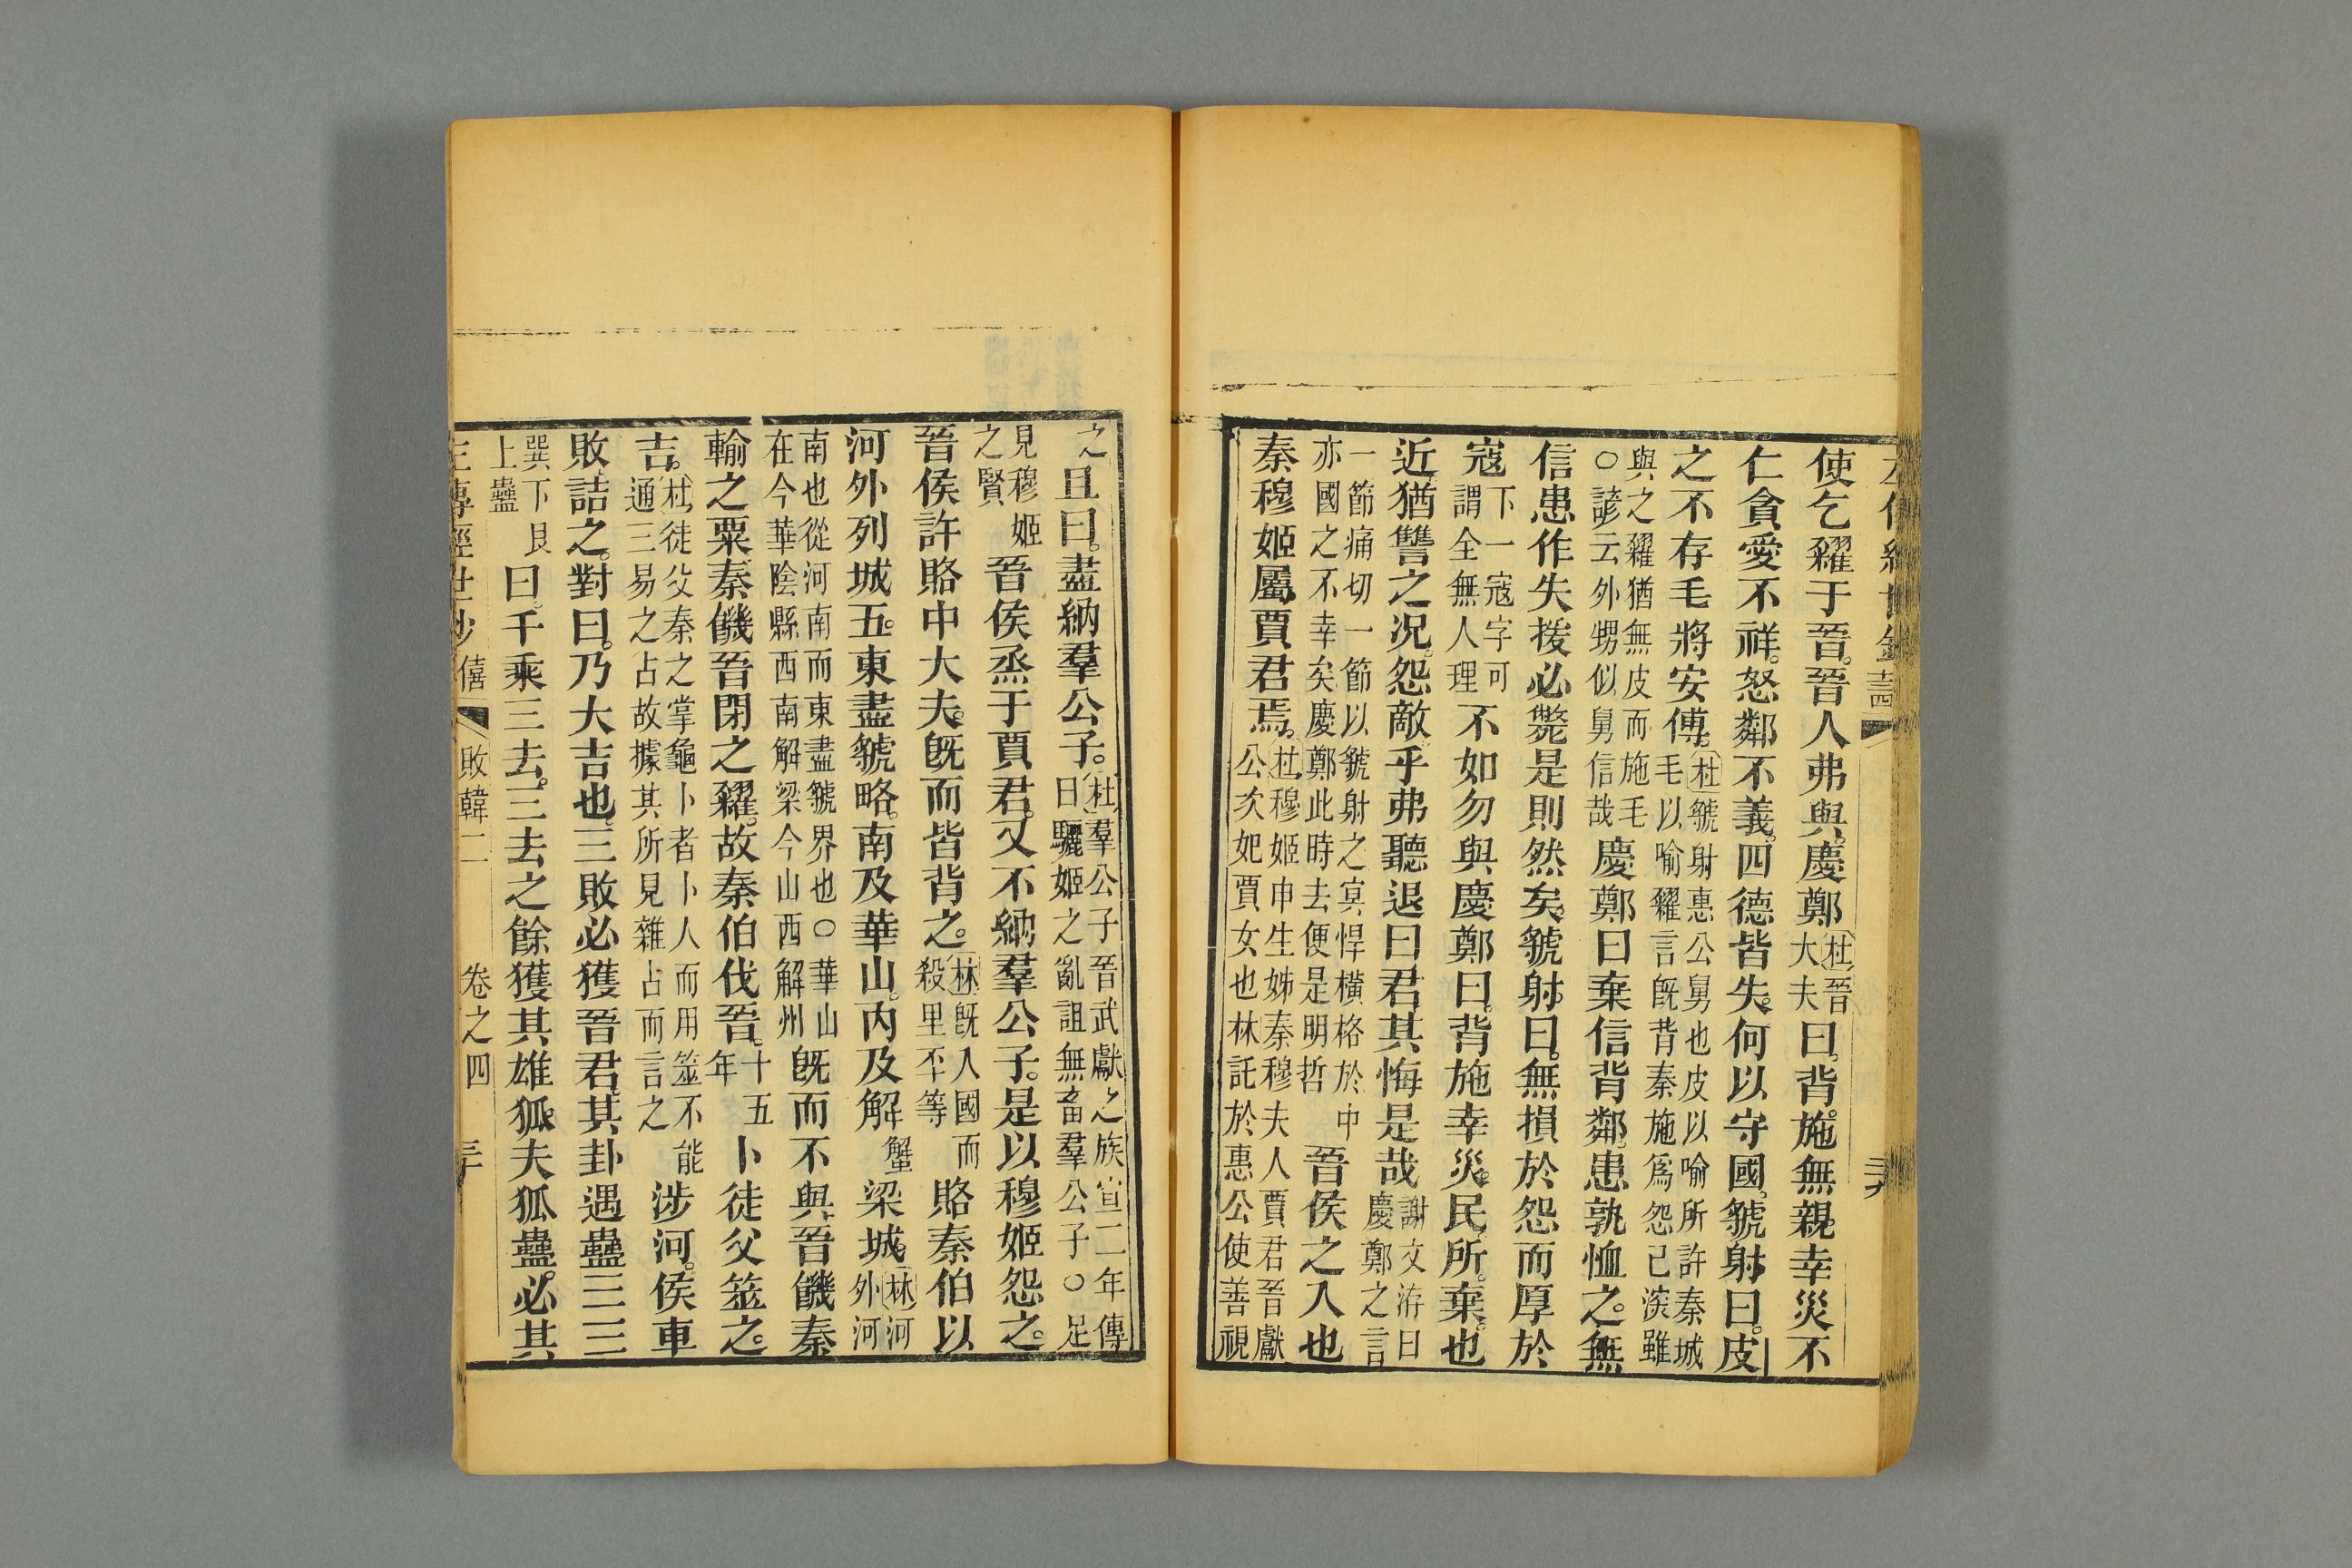 使乞糴于晉。晉人弗與。慶鄭杜晉大夫曰。背施。無親。幸災不
仁。貪愛不祥。怒鄰不義。四德皆失。何以守國。虢射曰。皮
之不存毛將安傅。杜虢射惠公舅也皮以喻所許秦城毛以喻糴言旣背秦施爲怨已深雖
與之糴猶無皮而施毛○諺云外甥似舅信哉慶鄭曰棄信背鄰。患孰恤之。無
信患作失援必斃是則然矣。虢射曰。無損於怨而厚於
寇下一寇字可謂全無人理不如勿與慶鄭曰。背施幸災。民所。棄。也
近。猶讐之況。怨敵乎弗聽退曰君其悔是哉謝文洊曰慶鄭之言
一節痛切一節以虢射之冥悍橫格於中亦國之不幸矣慶鄭此時去便是明哲晉侯之入也
秦穆姬屬賈君焉。杜穆姬申生姊秦穆夫人賈君晉獻公次妃賈女也林託於惠公使善視
之且曰。盡納羣公子。杜羣公子晉武獻之族宣二年傳曰驪姬之亂詛無畜羣公子○足
見穆姬之賢晉侯烝于賈君。又不納羣公子。是以穆姬怨之。
晉侯許賂中大夫。旣而皆背之。林旣入國而殺里丕等賂秦伯以
河外列城五。東盡虢略。南及華山。內及解蟹梁城。林河外河
南也從河南而東盡虢界也○華山在今華陰縣西南解梁今山西解州旣而不與晉饑秦
輸之粟秦饑晉閉之糴。故秦伯伐晉。十五年卜徒父筮之。
吉。杜徒父秦之掌龜卜者卜人而用筮不能通三易之占故據其所見雜占而言之涉河。侯車
敗詰之。對曰。乃大吉也。三敗必獲晉君。其卦遇蠱☶☴
巽下艮上蠱曰。千乘三去。三去之餘獲其雄狐。夫狐蠱。必其
僖 敗韓二 卷之四 三十